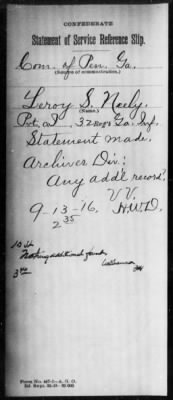 CONFEDERATE
Statement of Service Reference Slip.
Com. of Pen. Ga.
(Source of communication.)
Leroy S. Neely.
(Name.)
Pvt. I 32 Reg't Ga. Inf.
Statement made.
Archives Div:
Any add'l record?
V.V.
9-13-'16. H.W.D.
2 35
Nothing additional found
3 40
Form No. 487-1—A. G. O.